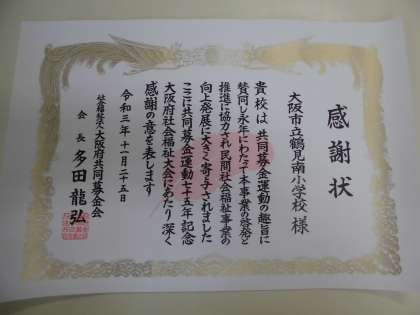 感謝状
大阪市立鶴見南小学校 様
貴校は 共同募金運動の趣旨に
賛同し永年にわたって本事業の啓発と
推進に協力され民間社会福祉事業の
向上発展に大きく寄与されました
ここに共同募金運動七十五年記念
大阪府社会福祉大会にあたり深く
感謝の意を表します
令和三年十一月二十五日
社会福祉法人大阪府共同募金会
会長 多田龍弘